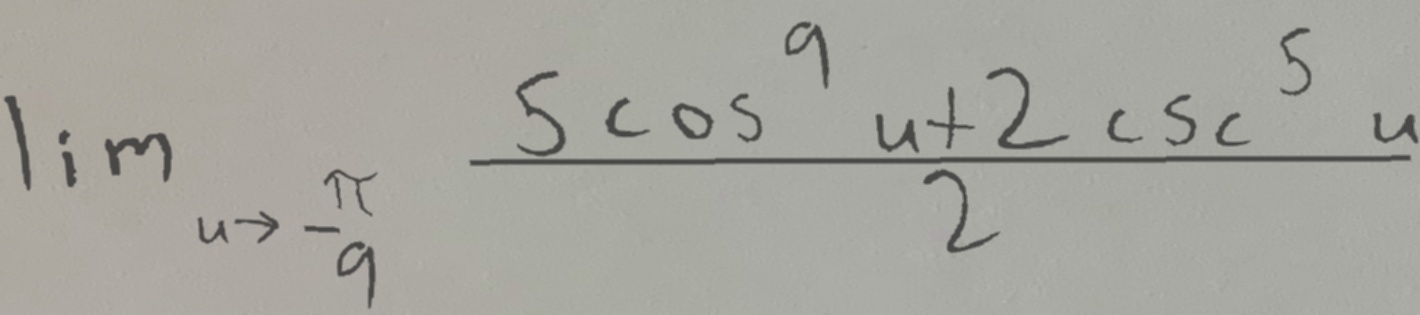 \lim_{u \to \frac{\pi}{9}} \frac{5 \cos^9 u + 2 \csc^5 u}{2}